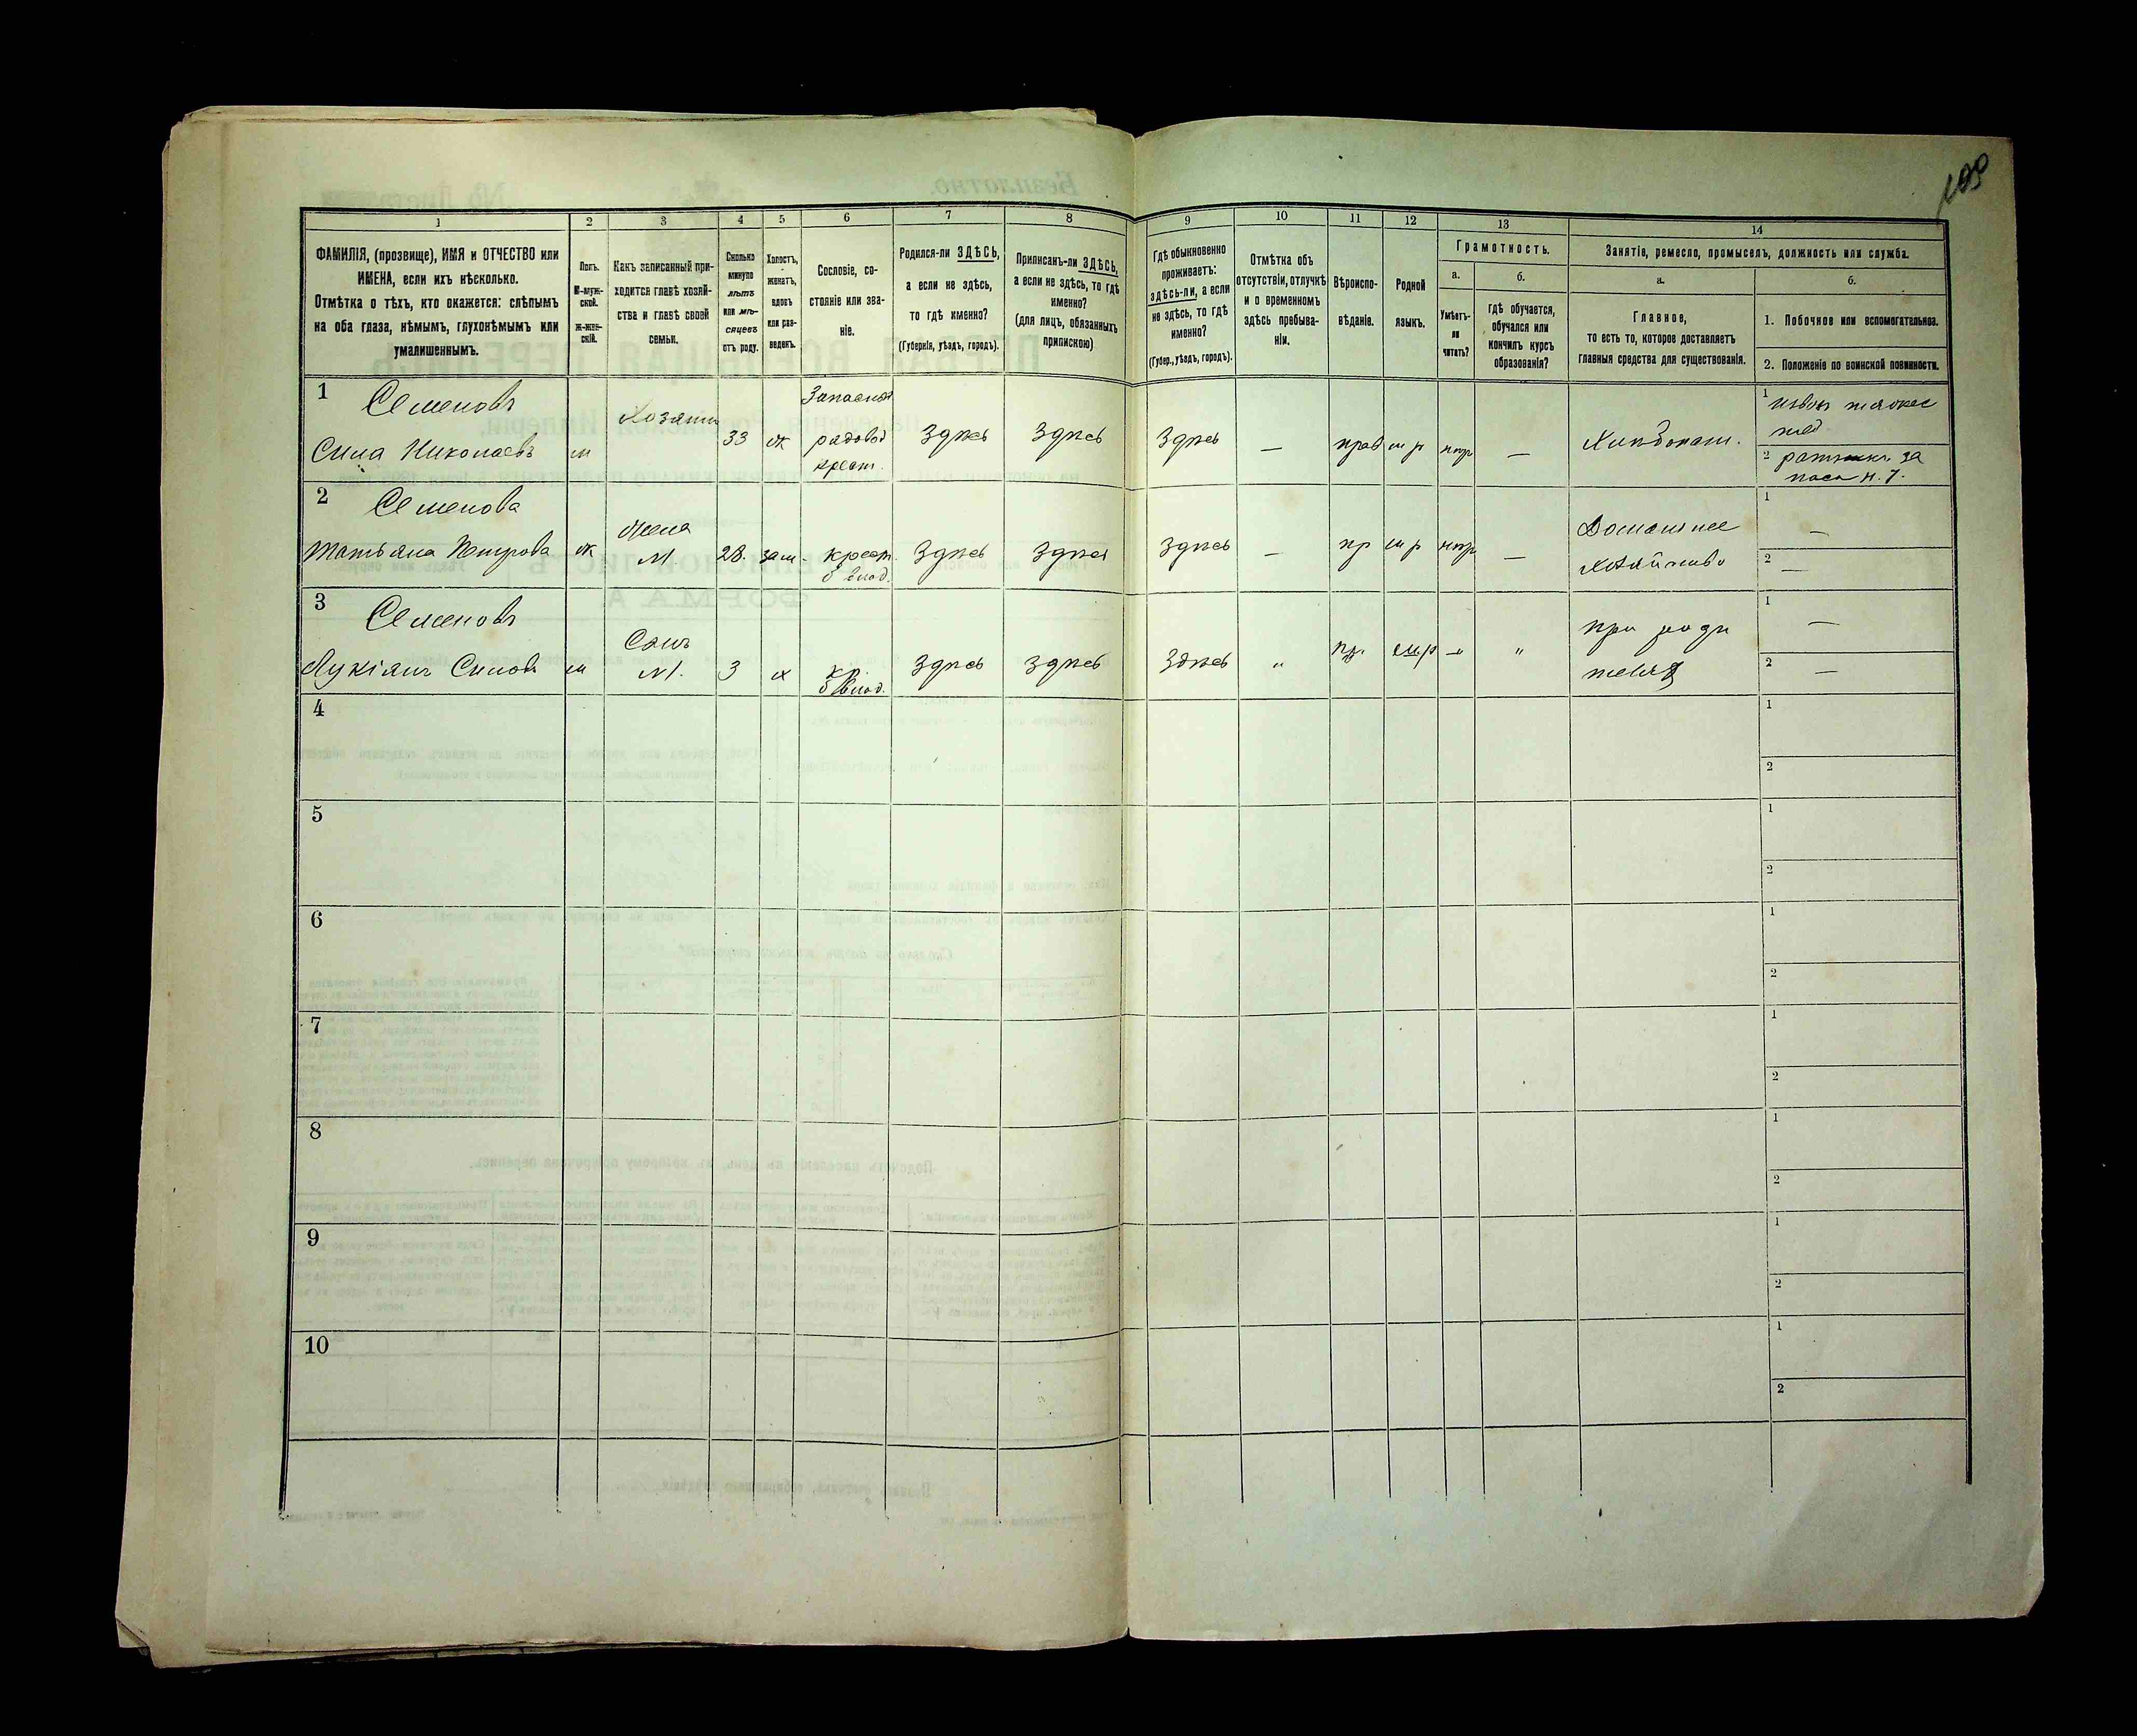 1 2 3 4 5 6 7 8 9 10 11 12 13 14
ФАМИЛІЯ, (прозвище), ИМЯ и ОТЧЕСТВО или
ИМЕНА, если ихъ нѣсколько.
Отмѣтка о тѣхъ, кто окажется: слѣпымъ
на оба глаза, нѣмымъ, глухонѣмымъ или
умалишеннымъ.
Полъ.
М-муж-
ской.
Ж-жен-
скій.
Какъ записанный при-
ходится главѣ хозяй-
ства и главѣ своей
семьи.
Сколько
минуло
лѣтъ
или мѣ-
сяцевъ
отъ роду.
Холостъ,
женатъ,
вдовъ
или раз-
веденъ.
Сословіе, со-
стояніе или зва-
ніе.
Родился-ли ЗДѢСЬ,
а если не здѣсь,
то гдѣ именно?
(Губернія, уѣздъ, городъ).
Приписанъ-ли ЗДѢСЬ,
а если не здѣсь, то гдѣ
именно?
(для лицъ, обязанныхъ
припискою)
Гдѣ обыкновенно
проживаетъ:
здѣсь-ли, а если
не здѣсь, то гдѣ
именно?
(Губер., уѣздъ, городъ).
Отмѣтка объ
отсутствіи, отлучкѣ
и о временномъ
здѣсь пребыва-
ніи.
Вѣроиспо-
вѣданіе.
Родной
языкъ.
Грамотность.
а.
Умѣетъ-
ли
читать?
б.
Гдѣ обучается,
обучался или
кончилъ курсъ
образованія?
Занятіе, ремесло, промыселъ, должность или служба.
а.
Главное,
то есть то, которое доставляетъ
главныя средства для существованія.
б.
1. Побочное или вспомогательное.
2. Положеніе по воинской повинности.
1 Семеновъ
Сила Николаевъ м
Хозяин
33 ж
Запасной
рядовой
крест.
Здѣсь Здѣсь Здѣсь — прав м р нпр — Хлѣбопаш.
1
2
2 Семенова
Татьяна Петрова ж
Жена
М 28. зам. крест.
б влад.
Здѣсь Здѣсь Здѣсь — пр м р нпр —
Домашнее
хозяйство
1 —
2 —
3 Семеновъ
Лукіянъ Силовъ м
Сынъ
М. 3 х кр.
б влад.
Здѣсь Здѣсь Здѣсь „ пр. м р — „
при роди
теляхъ
1 —
2 —
4 1
2
5 1
2
6 1
2
7 1
2
8 1
2
9 1
2
10 1
2